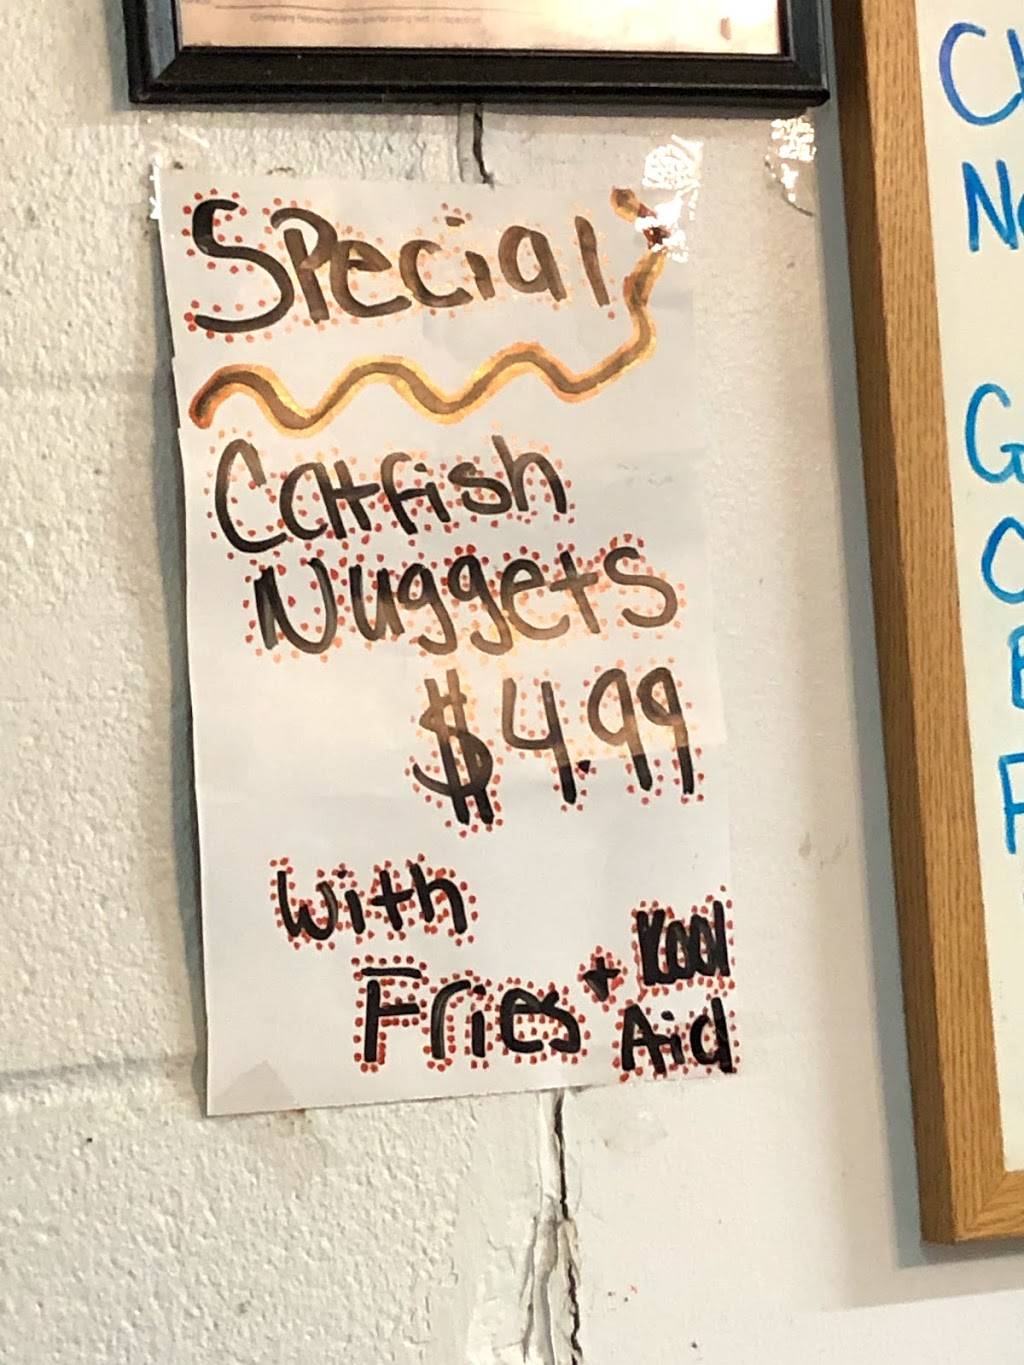 Special
Catfish
Nuggets
$4.99
with
Fries + Kool
Aid